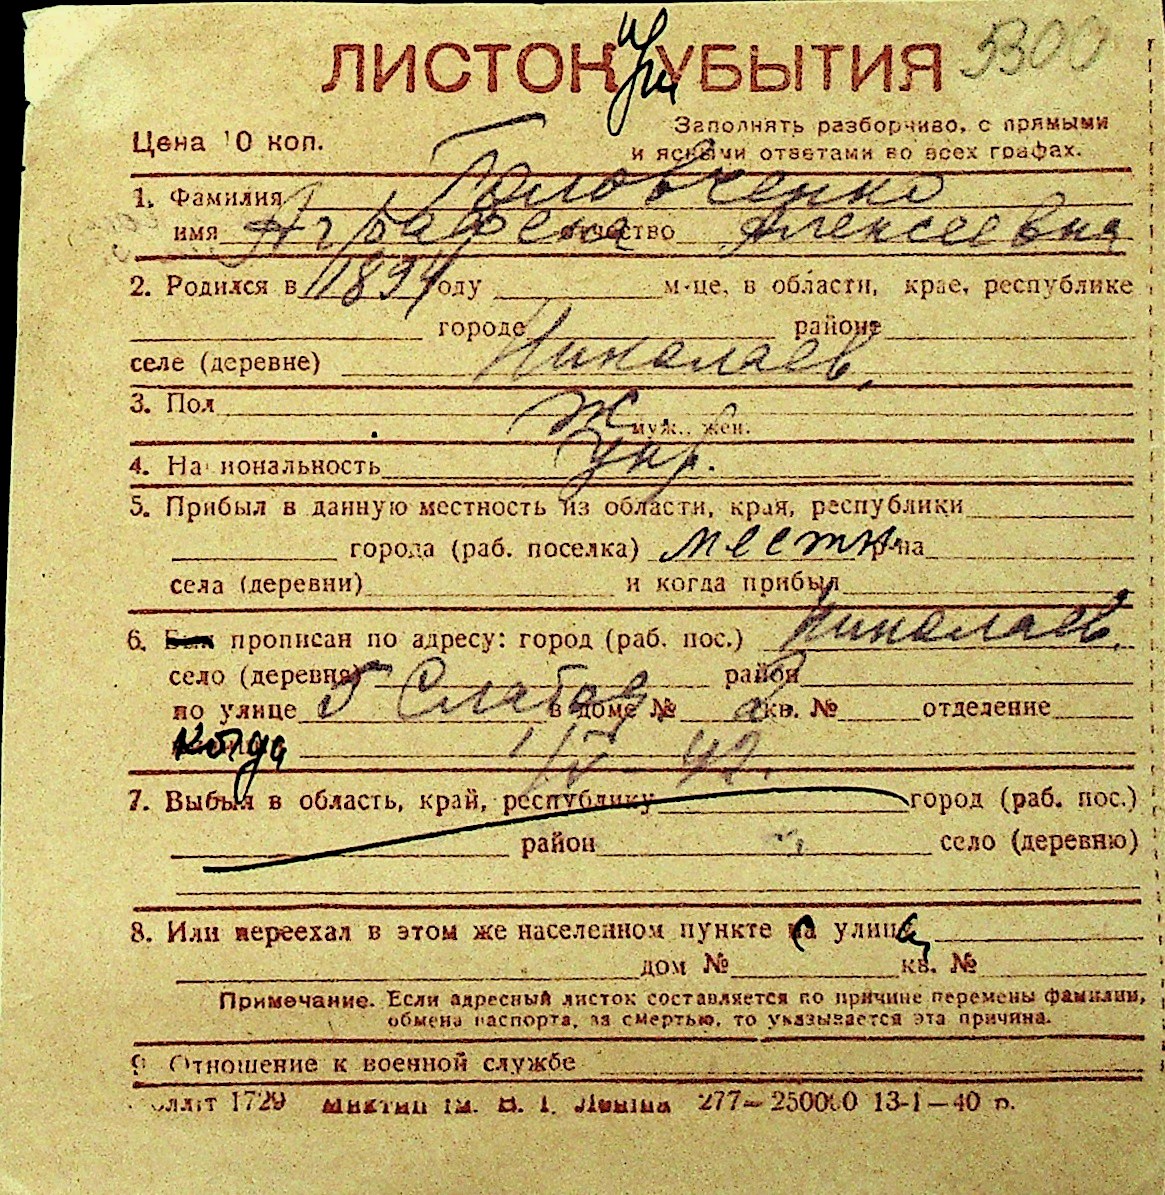 ЛИСТОК при УБЫТИЯ 5300
Цена 10 коп.
Заполнять разборчиво, с прямыми
и ясными ответами во всех графах.
1. Фамилия Головченко
имя Аграфена отчество Алексеевна
2. Родился в 1894 году м-це, в области, крае, республике
городе районе
селе (деревне) Николаев,
3. Пол Ж
муж., жен.
4. Национальность укр.
5. Прибыл в данную местность из области, края, республики
города (раб. поселка) местн. р-на
села (деревни) и когда прибыл
6. Был прописан по адресу: город (раб. пос.) Николаев,
село (деревня) район
по улице в доме № кв. № отделение
когда
7. Выбыл в область, край, республику город (раб. пос.)
район село (деревню)
8. Или переехал в этом же населенном пункте с улицы
дом № кв. №
Примечание. Если адресный листок составляется по причине перемены фамилии,
обмена паспорта, за смертью, то указывается эта причина.
9. Отношение к военной службе
1729 277—250000 13-1—40 р.